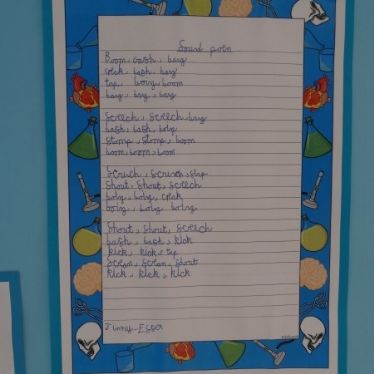 Sound poem
Boom, bash, bang
crak, bash, bang
tap, boing, boom
bang, bang, bang
Screech, Screech, bang
bash, bash, boing
Stomp, Stomp, boom
boom, boom, boom
Scruch, Scrunch, slap
Shout, Shout, Screech
boing, boing, crak
boing, boing, boing
Shout, Shout, Screech
bash, bash, kick
kick, kick, tap
Scream, Scream, Shout
kick, kick, kick